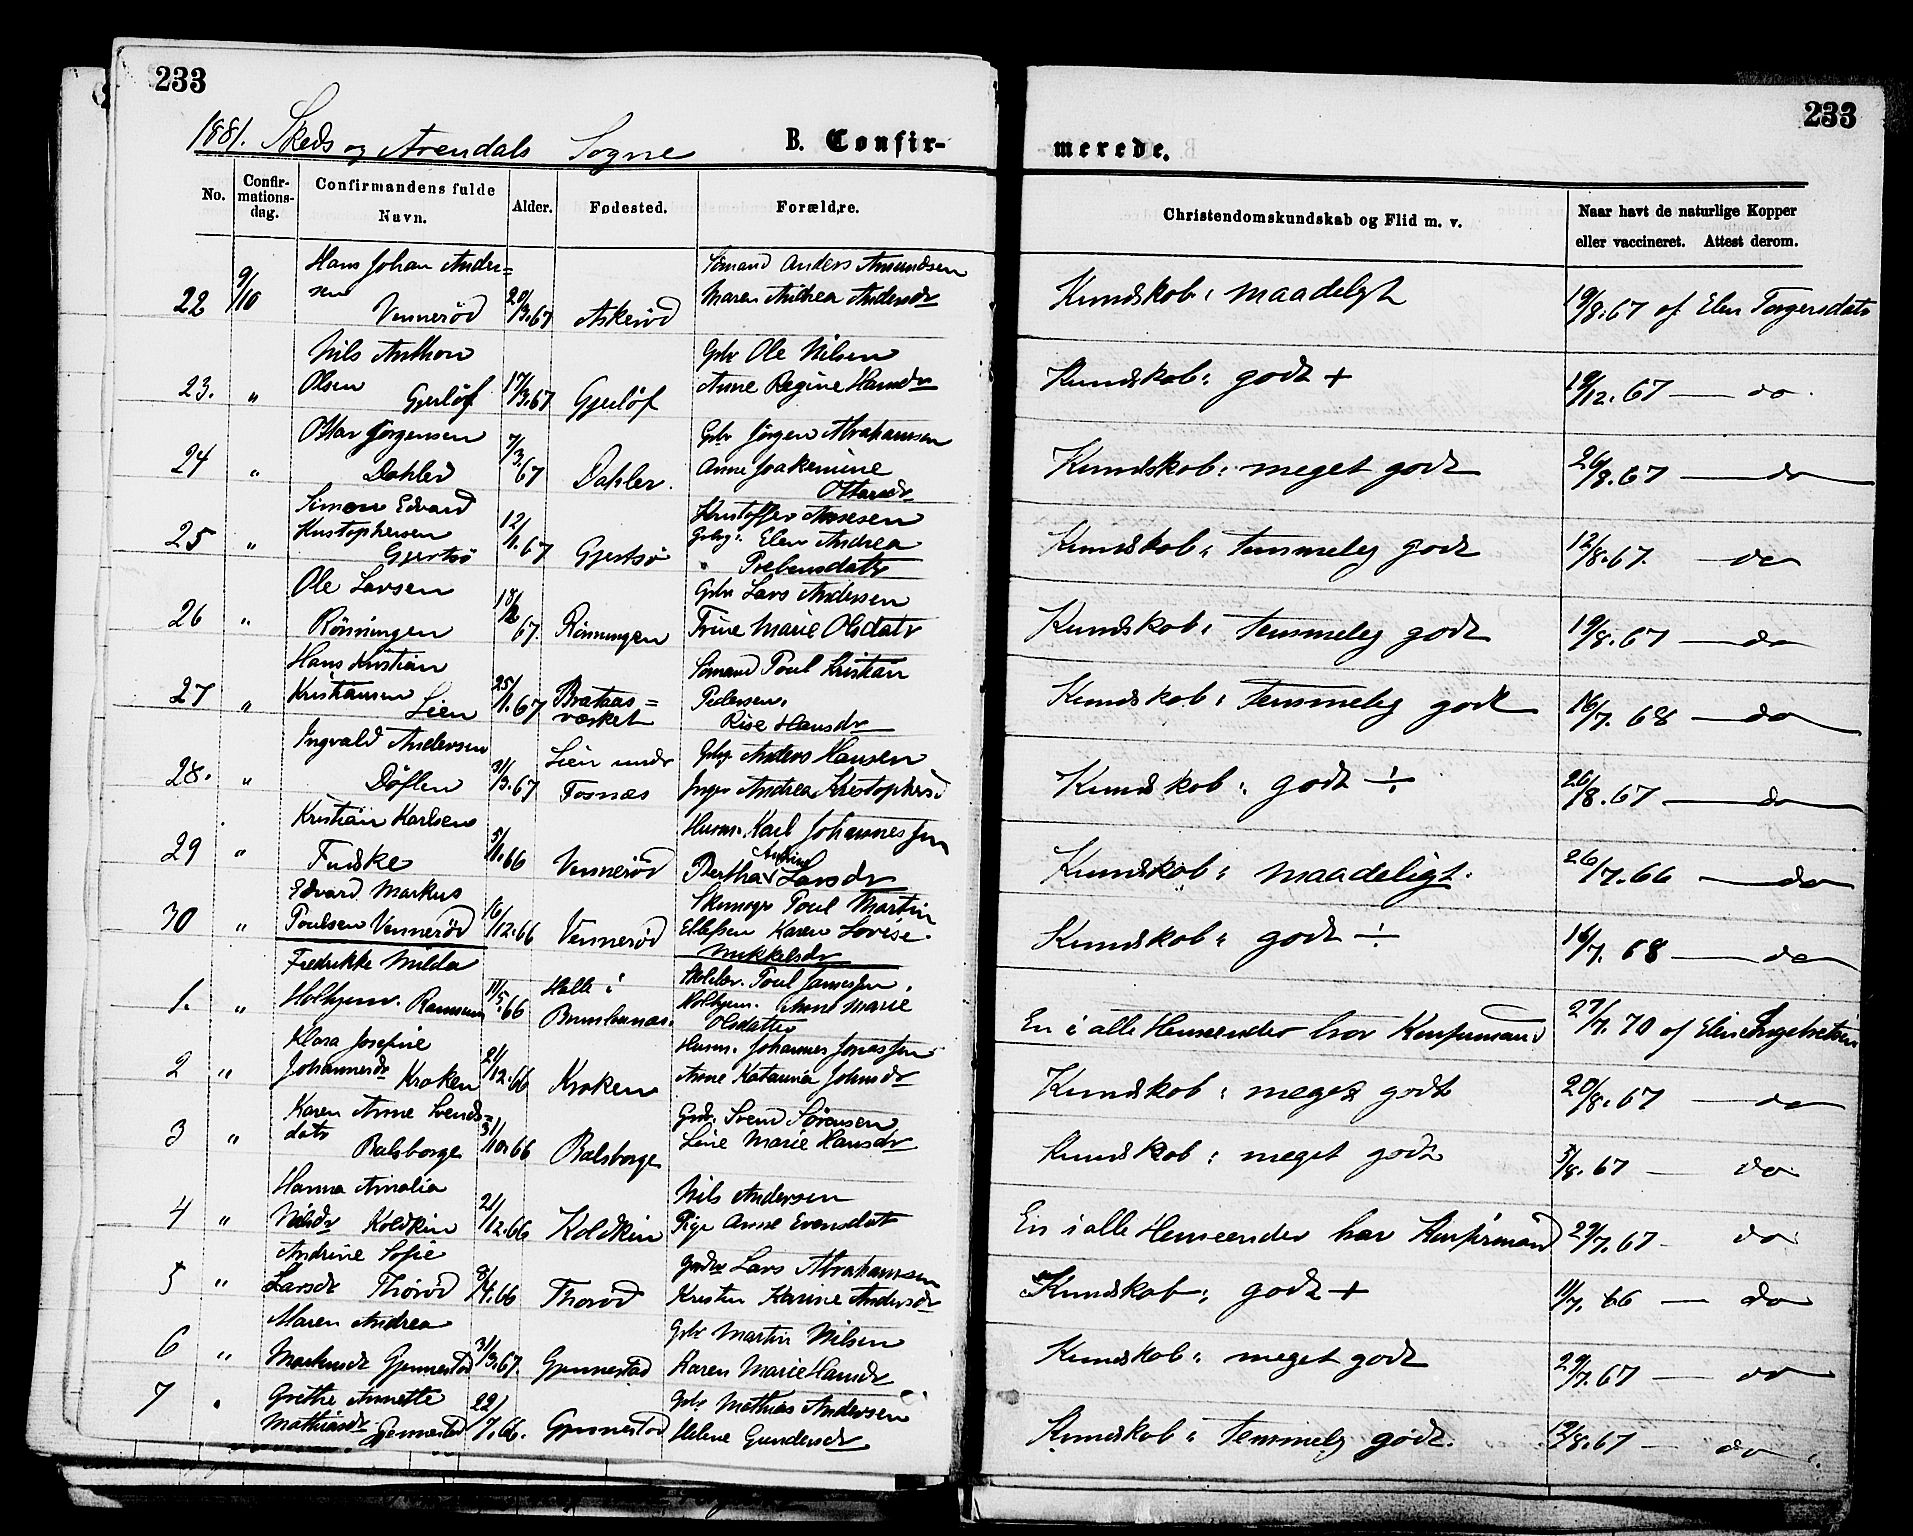 233
233
1881. Skeds og Arendals Sogne B. Confir-
merede.
No. Confir-mations-dag. Confirmandens fulde Navn. Alder. Fødested. Forældre. Christendomskundskab og Flid m. v. Naar havt de naturlige Kopper eller vaccineret. Attest derom.
Hans Johan Ander= Sømand Anders Amundsen
22 9/10 sen Vennerød 20/3.67 Askerød Maren Andrea Andersdr Kundskab: maadeligt 19/8.67 af Elen Torgersdatr
Nils Anthon Gbr Ole Nilsen
23. " Olsen Gjerløf 17/3.67 Gjerløf Anne Regine Hansdr Kundskab: godt + 19/12.67 — do.
Ottar Jørgensen Gbr Jørgen Abrahamsen
24 " Dahler 7/3 67 Dahler. Anne Joakemine Kundskab: meget godt 26/8.67 — do
Ottarsdr
Simon Edvard Kristoffer
25 " Kristophersen 12/1.67 Gjertsø Elen Andrea Kundskab: temmelig godt 12/8.67. — do
Gjertsø " Prebensdatr
Ole Larsen Gbr Lars Andersen
26 " Rønningen 67. Rønningen Trine Marie Olsdatr Kundskab: temmelig godt 19/8.67 — do
Hans Kristian Sømand Poul Kristian
27 " Kristiansen Lien 25/1.67 Brataas= Pedersen, Kundskab: temmelig godt 16/7. 68 — do
værket Rise Hansdr
Ingvald Andersen Lien undr Gbr Anders Hansen
28. " Døflen 31/3.67 Fosnæs Inger Andrea Kundskab: godt ÷ 26/8.67 — do
Kristian Karlsen Husm. Karl Johannessen
29 " Fuske 5/11.66 Vennerød Bertha Andrine Larsdr Kundskab: maadeligt. 26/7.66 — do
Edvard Markus Poul Martin
30 " Poulsen Vennerød 16/12.66 Vennerød Ellefsen Karen Lovise Kundskab: godt ÷ 16/7. 68 — do
Mikkelsdr
Fredrikke Milda Halle i Poul
1. " Holhjem. 11/5.66 Holhjem. Anne Marie En i alle Henseender brav Konfirmand 27/7.70 af
Olsdatter
Klara Josefine Husm. Johannes
2 " Johannesdr Kroken 21/12.66 Kroken Anne Katarina Johnsdr Kundskab: meget godt 20/8.67 — do
Karen Anne Svends= Svend Sørensen
3 " datr Balsborge 31/10.66 Balsborge Line Marie Hansdr Kundskab: meget godt 5/8.67 — do
Hanna Amalia Nils Andersen
4 " Nilsdr Koldkin 21/12.66 Koldkin Pige Anne Evensdatr En i alle Henseender brav Konfirmand 29/7.67 — do
Andrine Sofie Lars Abrahamsen
5 " Larsdr Thorød 8/4.66 Thorød Kirsten Karine Andersdr Kundskab: godt + 11/7. 66 — do
Maren Andrea Gbr Martin Nilsen
6 " Markusdr Gjennestad 31/3.67. Gjennestad Karen Marie Hansdr Kundskab: meget godt 29/7.67 — do
Grethe Annette Gbr Mathias Andersen
7 " Mathiasdr Gjennestad 22/7.66. Gjennestad Helene Gundersdr Kundskab: temmelig godt. 12/8.67 — do